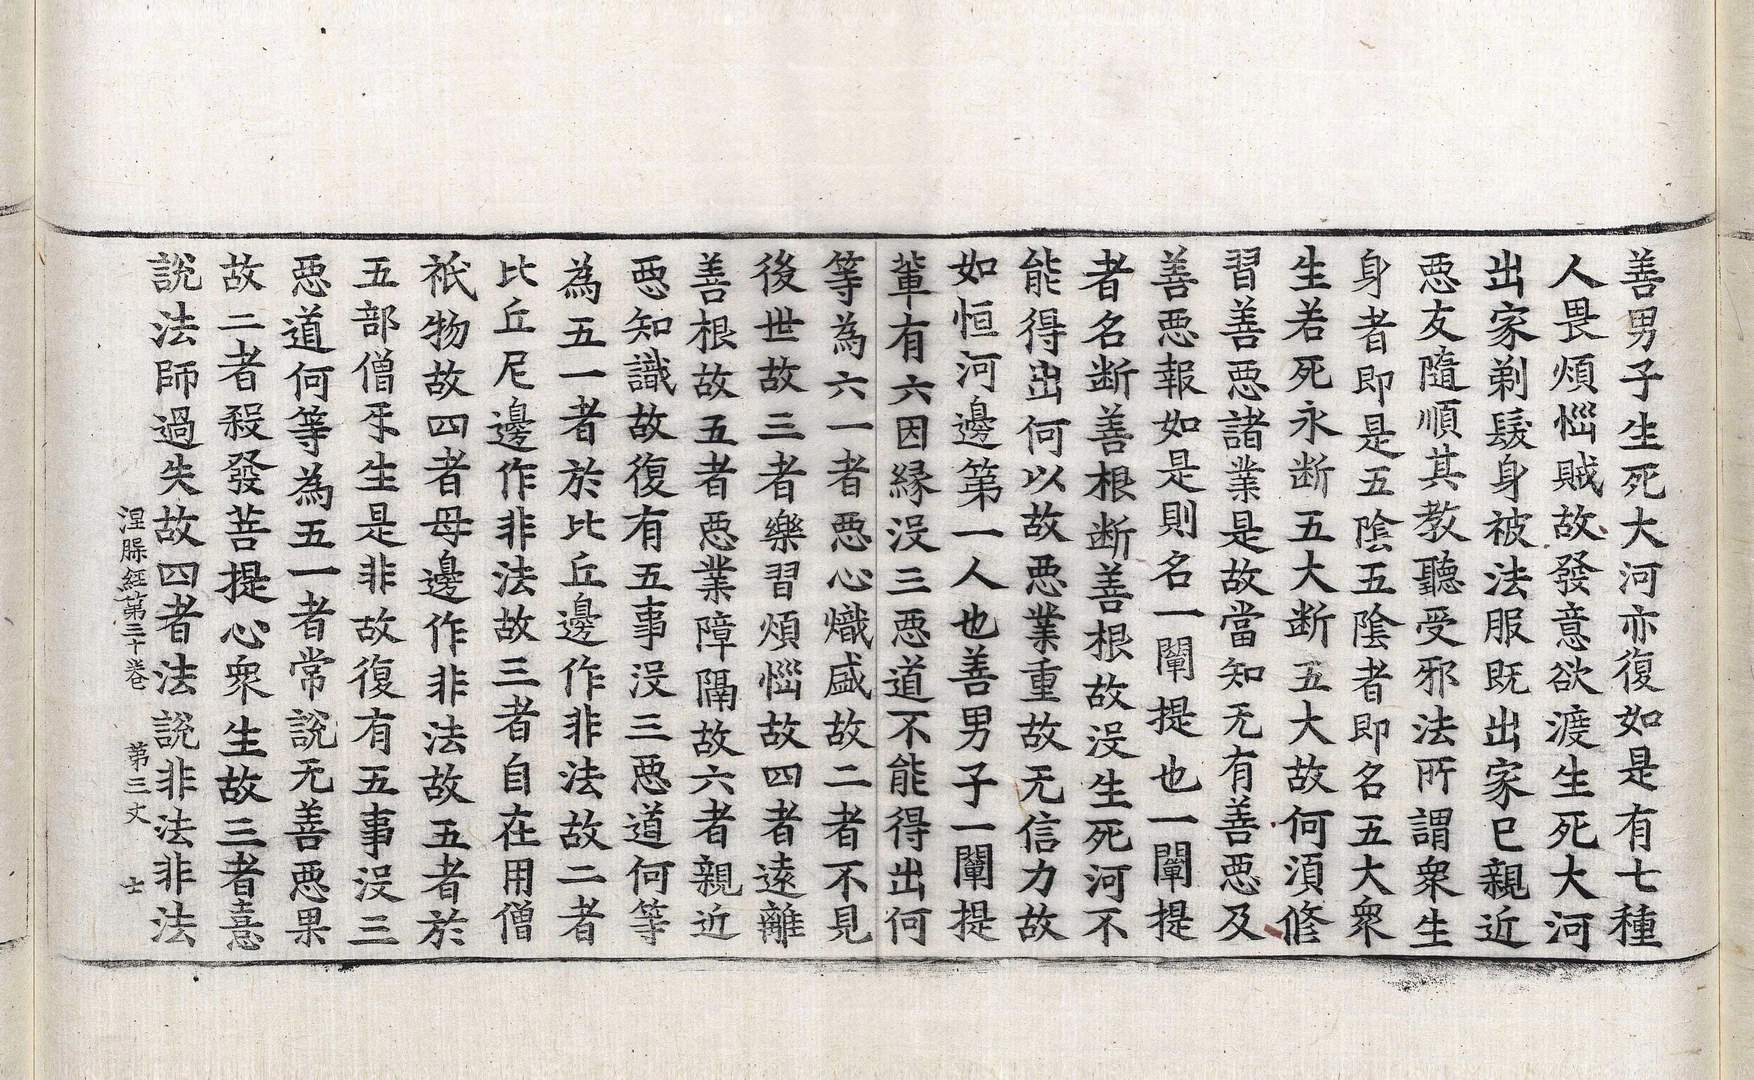 善男子生死大河亦復如是有七種
人畏煩惱賊故發意欲渡生死大河
出家剃髮身被法服既出家已親近
惡友隨順其教聽受邪法所謂衆生
身者即是五陰五陰者即名五大衆
生若死永断五大断五大故何須修
習善惡諸業是故當知无有善惡及
善惡報如是則名一闡提也一闡提
者名断善根断善根故没生死河不
能得出何以故惡業重故无信力故
如恒河邊第一人也善男子一闡提
輩有六因緣没三惡道不能得出何
等為六一者惡心熾盛故二者不見
後世故三者樂習煩惱故四者遠離
善根故五者惡業障隔故六者親近
惡知識故復有五事没三惡道何等
為五一者於比丘邊作非法故二者
比丘尼邊作非法故三者自在用僧
祇物故四者母邊作非法故五者於
五部僧㸦生是非故復有五事没三
惡道何等為五一者常說无善惡果
故二者殺發菩提心衆生故三者憙
說法師過失故四者法說非法非法
涅槃經第三十卷 第三丈 士